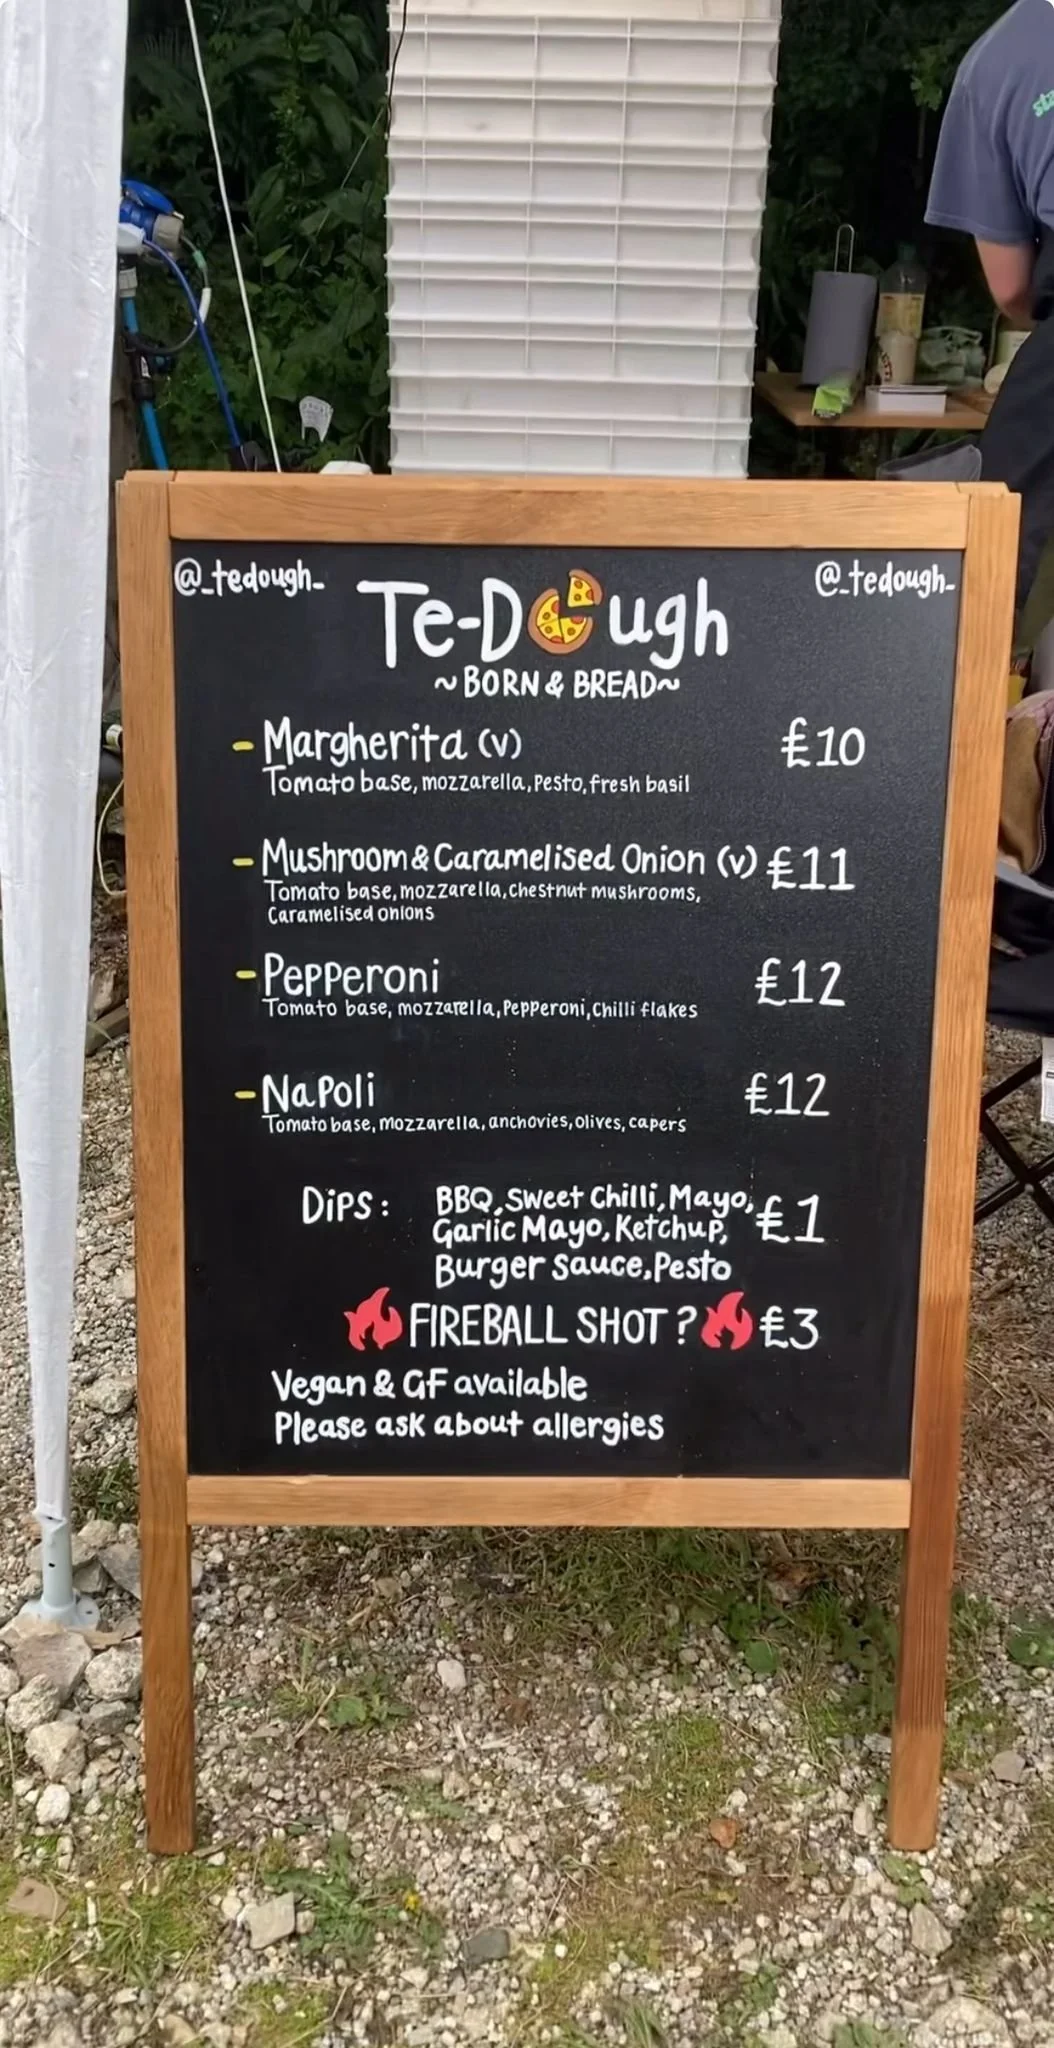 @_tedough_
@_tedough_
Te-Dough
~BORN & BREAD~
- Margherita (v) £10
Tomato base, mozzarella, Pesto, fresh basil
- Mushroom & Caramelised Onion (v) £11
Tomato base, mozzarella, chestnut mushrooms,
Caramelised onions
- Pepperoni £12
Tomato base, mozzarella, Pepperoni, Chilli flakes
- Napoli £12
Tomato base, mozzarella, anchovies, olives, capers
Dips: BBQ, Sweet Chilli, Mayo, £1
Garlic Mayo, Ketchup,
Burger Sauce, Pesto
FIREBALL SHOT? £3
Vegan & GF available
Please ask about allergies